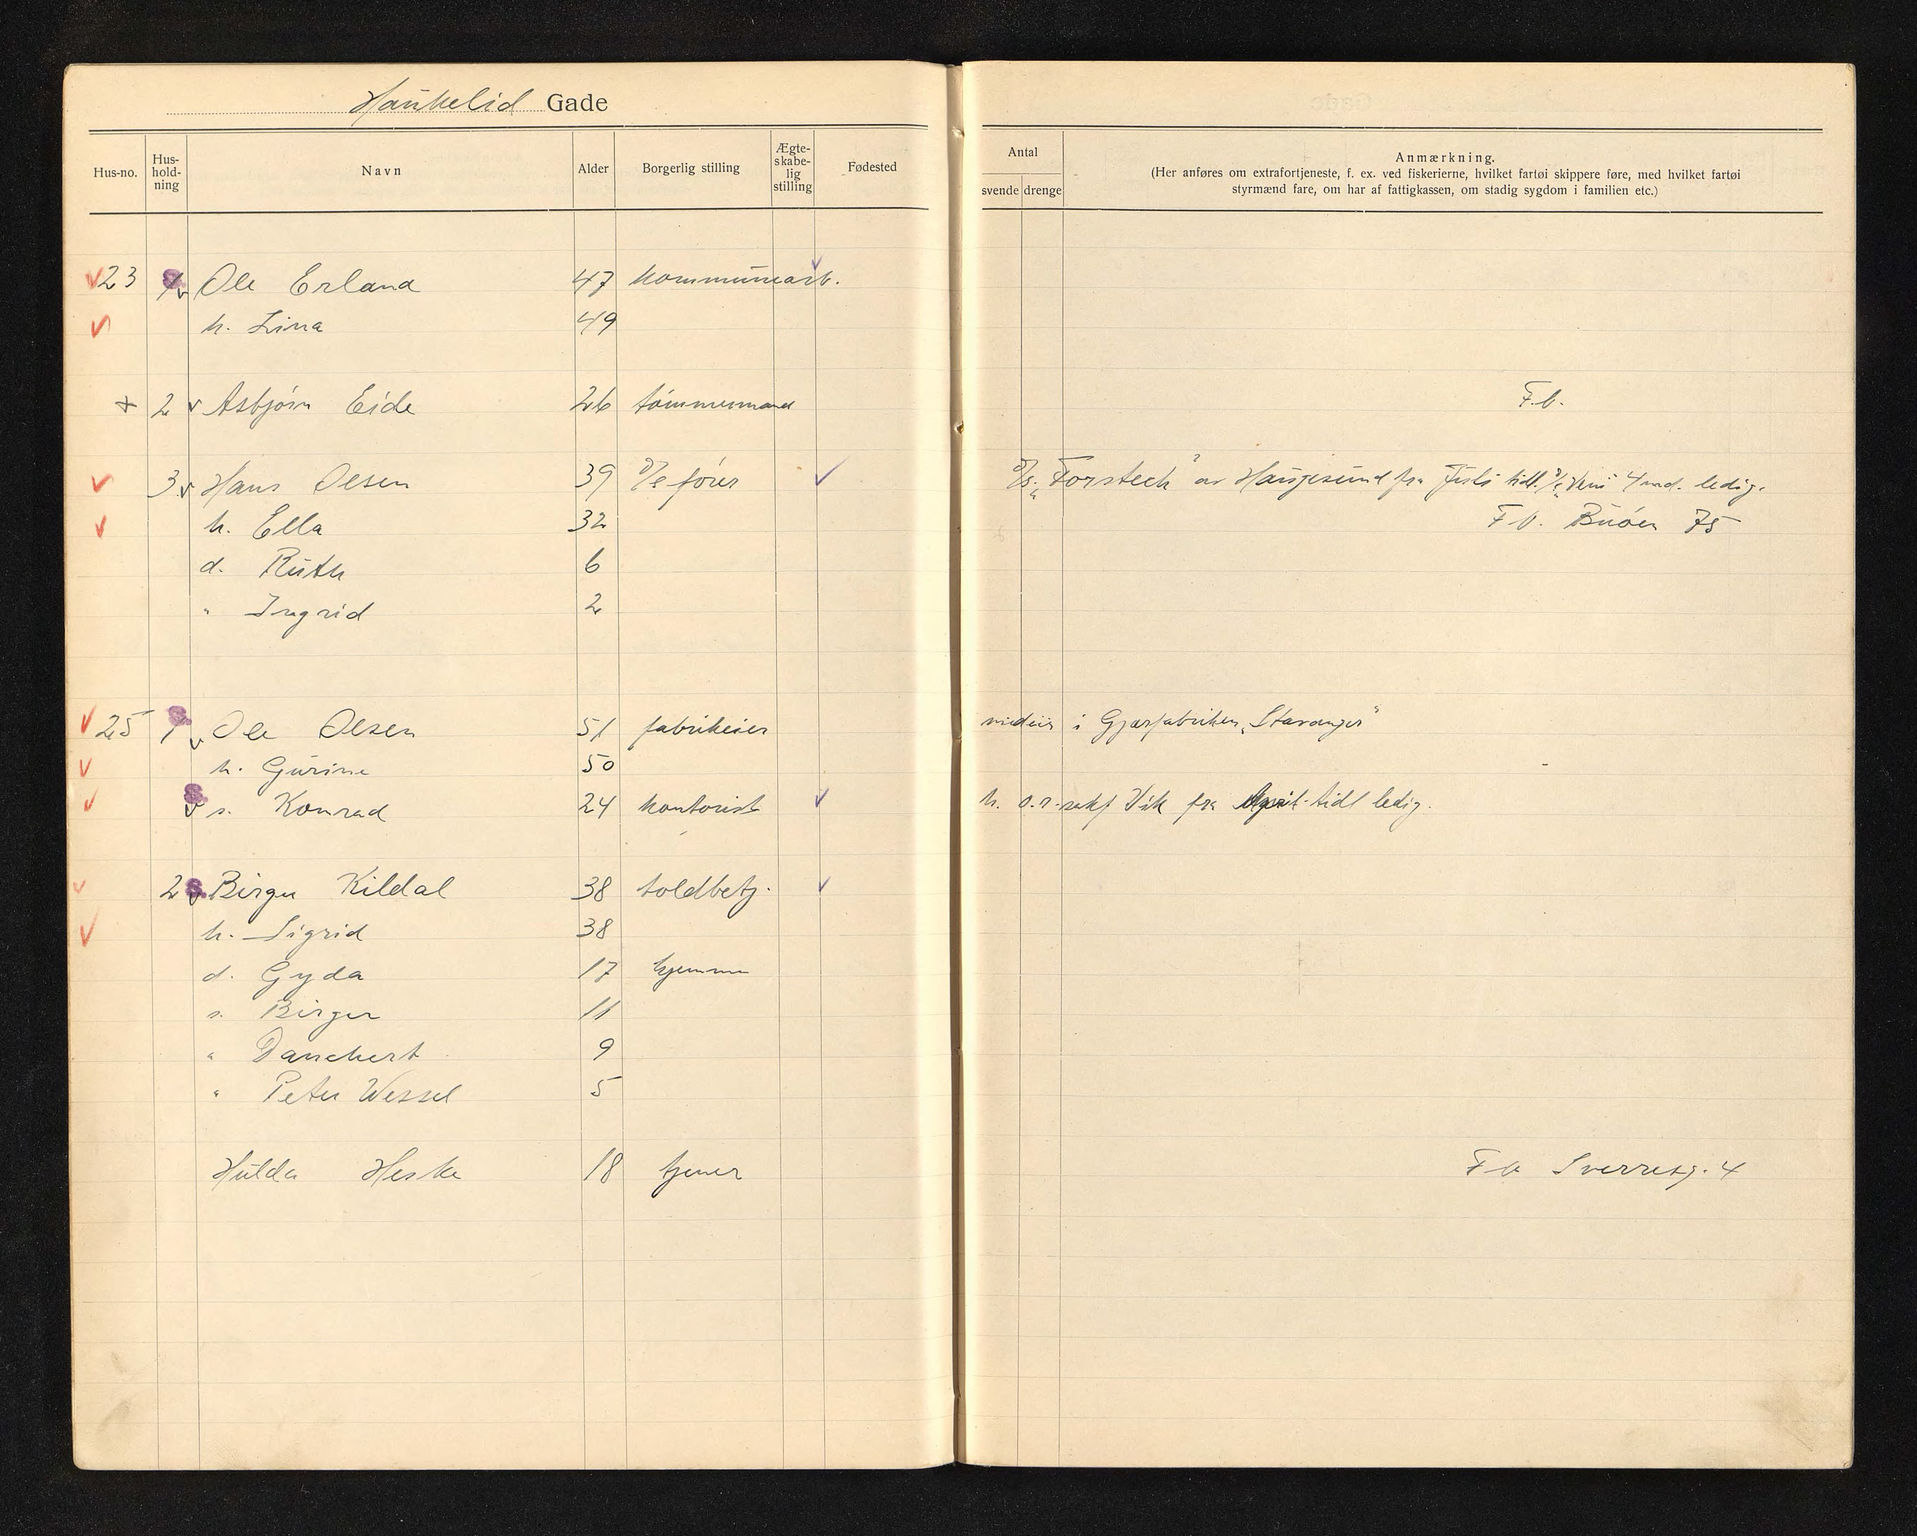 Haukelid Gade
Hus-no. Hus-hold-ning Navn Alder Borgerlig stilling Ægte-skabe-lig stilling Fødested
Antal svende drenge
Anmærkning.
(Her anføres om extrafortjeneste, f. ex. ved fiskerierne, hvilket fartøi skippere føre, med hvilket fartøi
styrmænd fare, om har af fattigkassen, om stadig sygdom i familien etc.)
23 1 Ole Erland 47 kommunearb.
h. Lina 49
+ 2 Asbjørn Eide 26 tømmermand F.b.
3 Hans Olsen 39 D/s fører D/s. "Forsteck" av Haugesund fra Juli tidl. 4 md. ledig.
h. Ella 32 F b. Buøen 75
d. Ruth 6
" Ingrid 2
25 1 Ole Olsen 51 fabrikeier medeier i Gjærfabriken "Stavanger"
h. Gurine 50
s. Konrad 24 kontorist h. o.r.sakf Vik fra April tidl ledig.
2 Birger Kildal 38 toldbetj.
h. Sigrid 38
d. Gyda 17 hjemme
s. Birger 11
" Danckert 9
" Peter Wessel 5
Hulda Heske 18 tjener F b Sverresg. 4